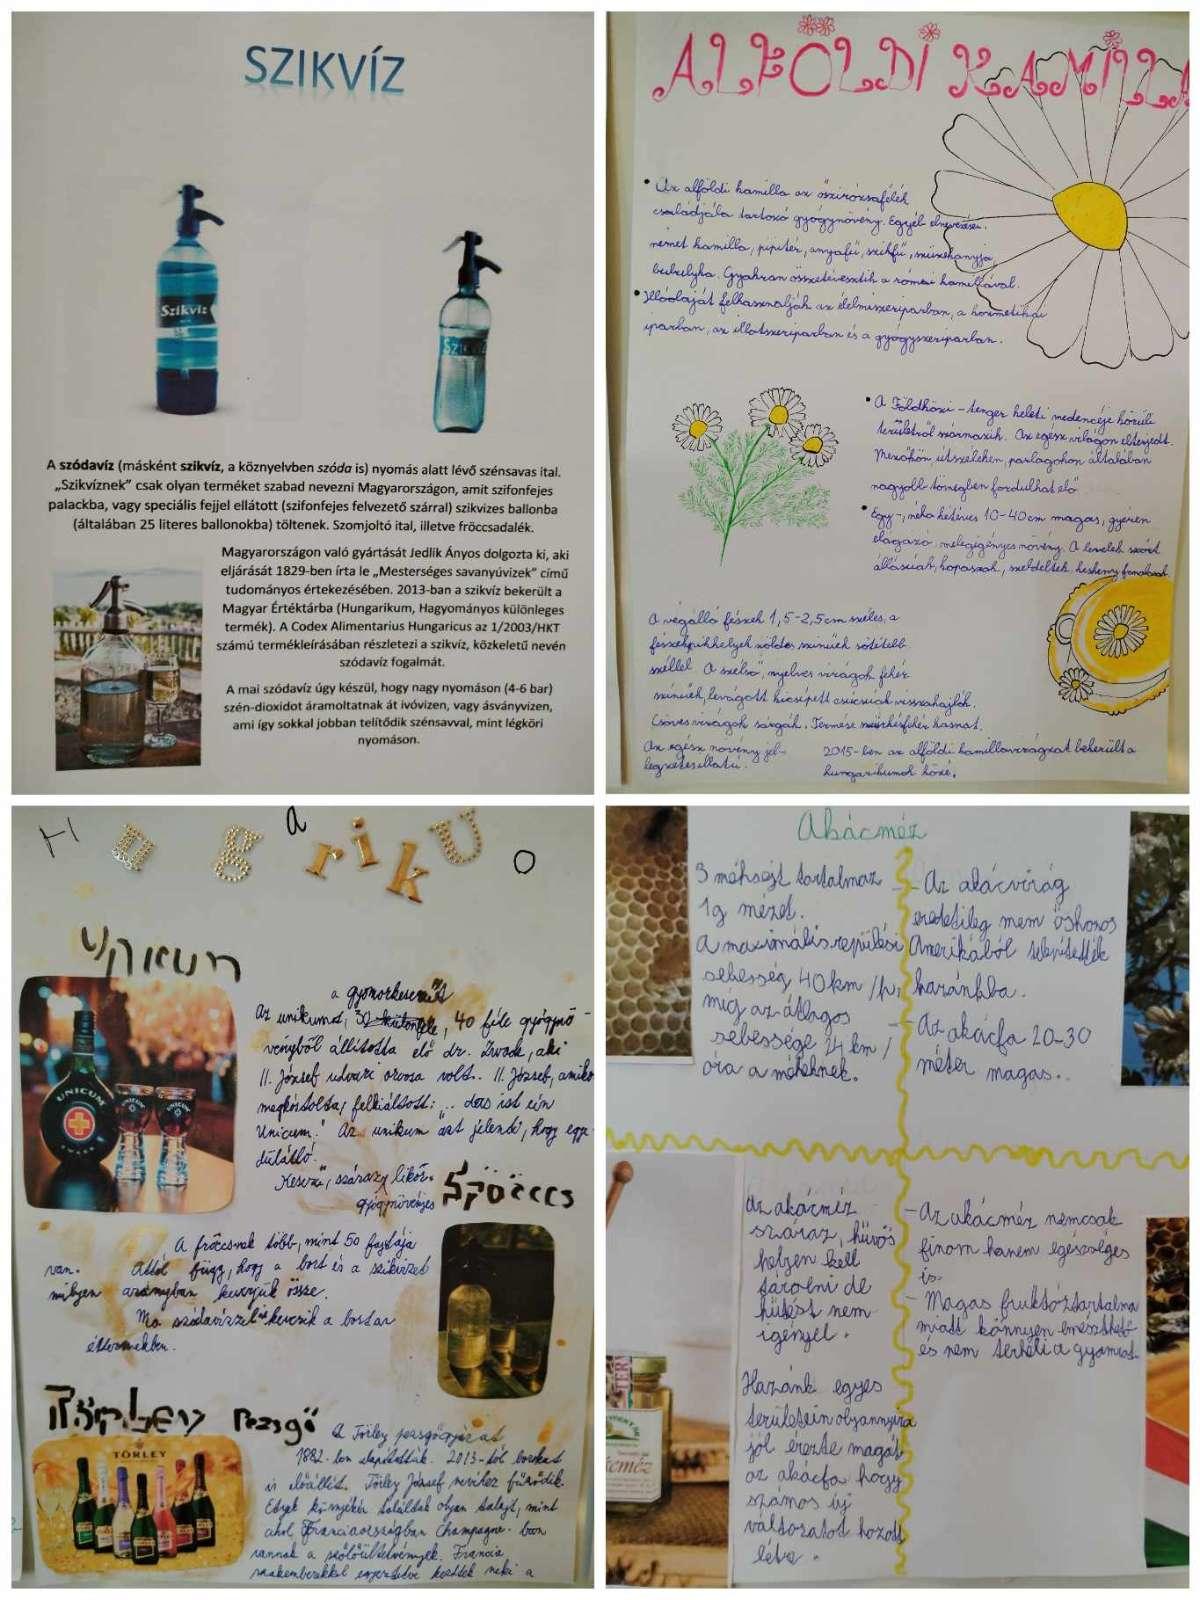 SZIKVÍZ
Szikvíz
SZIKVÍZ
A szódavíz (másként szikvíz, a köznyelvben szóda is) nyomás alatt lévő szénsavas ital.
„Szikvíznek” csak olyan terméket szabad nevezni Magyarországon, amit szifonfejes
palackba, vagy speciális fejjel ellátott (szifonfejes felvezető szárral) szikvizes ballonba
(általában 25 literes ballonokba) töltenek. Szomjoltó ital, illetve fröccsadalék.
Magyarországon való gyártását Jedlik Ányos dolgozta ki, aki
eljárását 1829-ben írta le „Mesterséges savanyúvizek” című
tudományos értekezésében. 2013-ban a szikvíz bekerült a
Magyar Értéktárba (Hungarikum, Hagyományos különleges
termék). A Codex Alimentarius Hungaricus az 1/2003/HKT
számú termékleírásában részletezi a szikvíz, közkeletű nevén
szódavíz fogalmát.
A mai szódavíz úgy készül, hogy nagy nyomáson (4-6 bar)
szén-dioxidot áramoltatnak át ivóvizen, vagy ásványvizen,
ami így sokkal jobban telítődik szénsavval, mint légköri
nyomáson.
ALFÖLDI KAMILLA
• Az alföldi kamilla az őszirózsafélék
családjába tartozó gyógynövény. Egyéb elnevezései:
német kamilla, pipitér, anyafű, szikfű,
bubulyka. Gyakran összetévesztik a római kamillával.
• Illóolaját felhasználják az élelmiszeriparban, a kozmetikai
iparban, az illatszeriparban és a gyógyszeriparban.
• A Földközi-tenger keleti medencéje körüli
területről származik. Az egész világon elterjedt.
Mezőkön, útszéleken, parlagokon általában
nagyobb tömegben fordulhat elő
• Egy-, néha kétéves 10-40 cm magas, gyéren
elágazó, melegigényes növény. A levelek szórt
állásúak, kopaszak, szeldeltek keskeny fonalasak.
A végálló fészek 1,5-2,5 cm széles, a
fészekpikkelyek zöldes színűek sötétebb
széllel. A szélső, nyelves virágok fehér
színűek, levágott kicsípett csúcsúak visszahajlók.
Csöves virágok sárgák. Termése szürkésfehér kasnat.
Az egész növény jel-
legzetes illatú.
2015-ben az alföldi kamillavirágzat bekerült a
hungarikumok közé.
HungarikUO
UNIKUM
a gyomorkeserűt
Az unikumot, 40 féle gyógynö-
vényből állította elő dr. Zwack, aki
II. József udvari orvosa volt. II. József, amikor
megkóstolta, felkiáltott: „.. das ist ein
Unicum." Az unikum azt jelenti, hogy egye-
dülálló.
Keserű, száraz, likőr.
gyógynövényes
UNICUM
ZWACK
fröccs
A fröccsnek több, mint 50 fajtája
van. Attól függ, hogy a bort és a szikvizet
milyen arányban keverjük össze.
Ma szódavízzel keverik a bort az
éttermekben.
Törley Pezsgő
TÖRLEY
A Törley pezsgőgyárat
1882-ben alapították. 2013-tól borokat
is előállít. Törley József nevéhez fűződik.
Etyek környékén találtak olyan talajt, mint
ahol Franciaországban Champagne-ban
vannak a szőlőültetvények. Francia
szakemberekkel egyeztetve kezdtek neki a
Akácméz
3 méhsejt tartalmaz
1g mézet.
A maximális repülési
sebesség 40 km/h,
míg az átlagos
sebessége 24 km/
óra a méheknek.
- Az akácvirág
eredetileg nem őshonos
Amerikából telepítették
hazánkba.
- Az akácfa 20-30
méter magas.
Az akácméz
száraz, hűvös
helyen kell
tárolni de
hűtést nem
igényel.
Hazánk egyes
területein olyannyira
jól érezte magát
az akácfa hogy
számos új
változatot hozott
létre.
- Az akácméz nemcsak
finom hanem egészséges
is.
- Magas fruktóztartalma
miatt könnyen emészthető
és nem terheli a gyomrot.